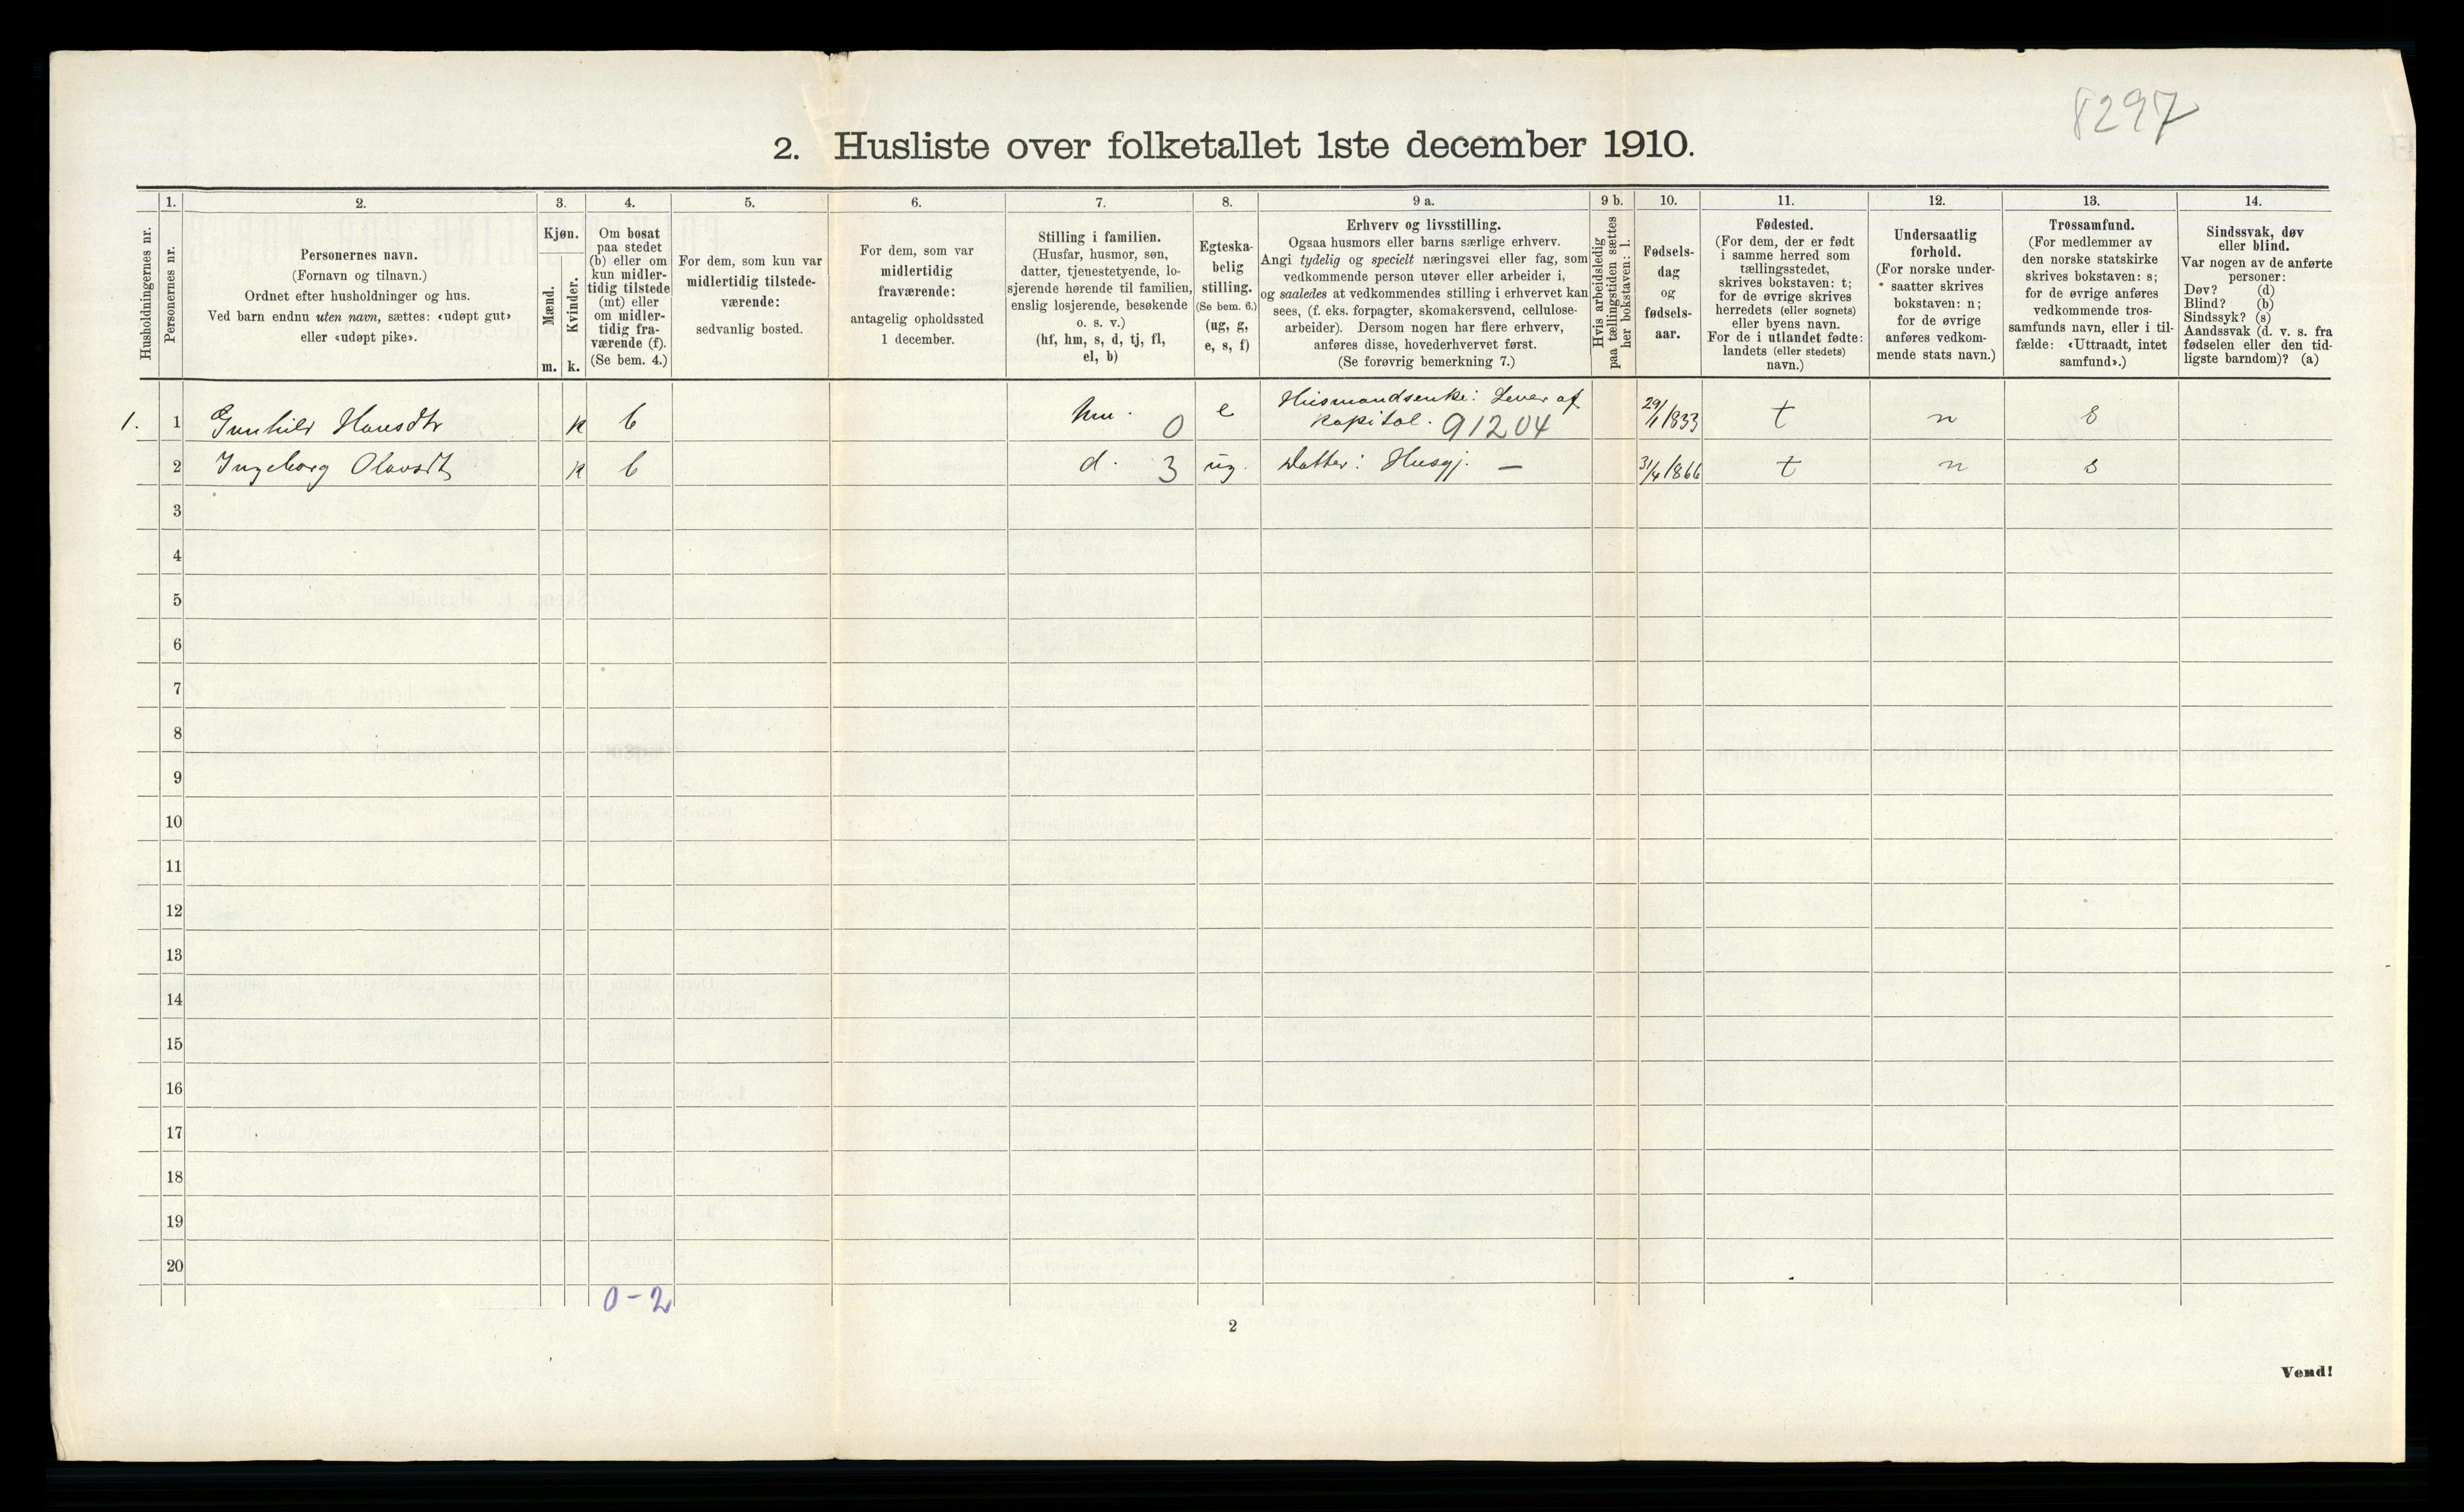 8297
2. Husliste over folketallet 1ste december 1910.
Husholdningernes nr.
1.
Personernes nr.
2.
Personernes navn.
(Fornavn og tilnavn.)
Ordnet efter husholdninger og hus.
Ved barn endnu uten navn, sættes: «udøpt gut»
eller «udøpt pike».
3.
Kjøn.
Mænd.
Kvinder.
m. k.
4.
Om bosat
paa stedet
(b) eller om
kun midler-
tidig tilstede
(mt) eller
om midler-
tidig fra-
værende (f).
(Se bem. 4.)
5.
For dem, som kun var
midlertidig tilstede-
værende:
sedvanlig bosted.
6.
For dem, som var
midlertidig
fraværende:
antagelig opholdssted
1 december.
7.
Stilling i familien.
(Husfar, husmor, søn,
datter, tjenestetyende, lo-
sjerende hørende til familien,
enslig losjerende, besøkende
o. s. v.)
(hf, hm, s, d, tj, fl,
el, b)
8.
Egteska-
belig
stilling.
(Se bem. 6.)
(ug, g,
e, s, f)
9 a.
Erhverv og livsstilling.
Ogsaa husmors eller barns særlige erhverv.
Angi tydelig og specielt næringsvei eller fag, som
vedkommende person utøver eller arbeider i,
og saaledes at vedkommendes stilling i erhvervet kan
sees, (f. eks. forpagter, skomakersvend, cellulose-
arbeider). Dersom nogen har flere erhverv,
anføres disse, hovederhvervet først.
(Se forøvrig bemerkning 7.)
9 b.
Hvis arbeidsledig
paa tællingstiden sættes
her bokstaven: l.
10.
Fødsels-
dag
og
fødsels-
aar.
11.
Fødested.
(For dem, der er født
i samme herred som
tællingsstedet,
skrives bokstaven: t;
for de øvrige skrives
herredets (eller sognets)
eller byens navn.
For de i utlandet fødte:
landets (eller stedets)
navn.)
12.
Undersaatlig
forhold.
(For norske under-
saatter skrives
bokstaven: n;
for de øvrige
anføres vedkom-
mende stats navn.)
13.
Trossamfund.
(For medlemmer av
den norske statskirke
skrives bokstaven: s;
for de øvrige anføres
vedkommende tros-
samfunds navn, eller i til-
fælde: «Uttraadt, intet
samfund».)
14.
Sindssvak, døv
eller blind.
Var nogen av de anførte
personer:
Døv? (d)
Blind? (b)
Sindssyk? (s)
Aandssvak (d. v. s. fra
fødselen eller den tid-
ligste barndom)? (a)
1. 1 Gunhild Hansdtr k b hm. 0 e Husmandsenke: Lever af kapital. 91204 29/1 1833 t n s
2 Ingeborg Olavsdtr k b d. 3 ug. Datter: Husgj. — 31/4 1866 t n s
3
4
5
6
7
8
9
10
11
12
13
14
15
16
17
18
19
20
0-2
2
Vend!